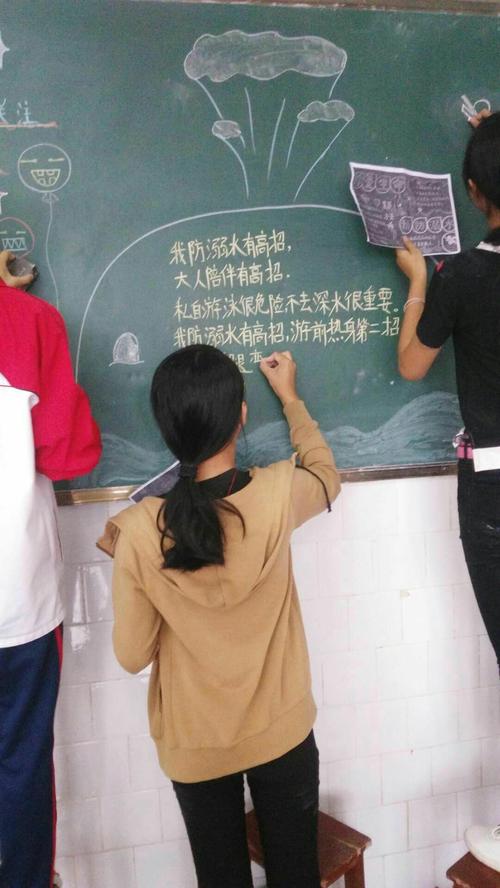 关注
我防溺水有高招，
大人陪伴有高招．
私自游泳很危险不去深水很重要．
我防溺水有高招，游前热身第二招
腿变